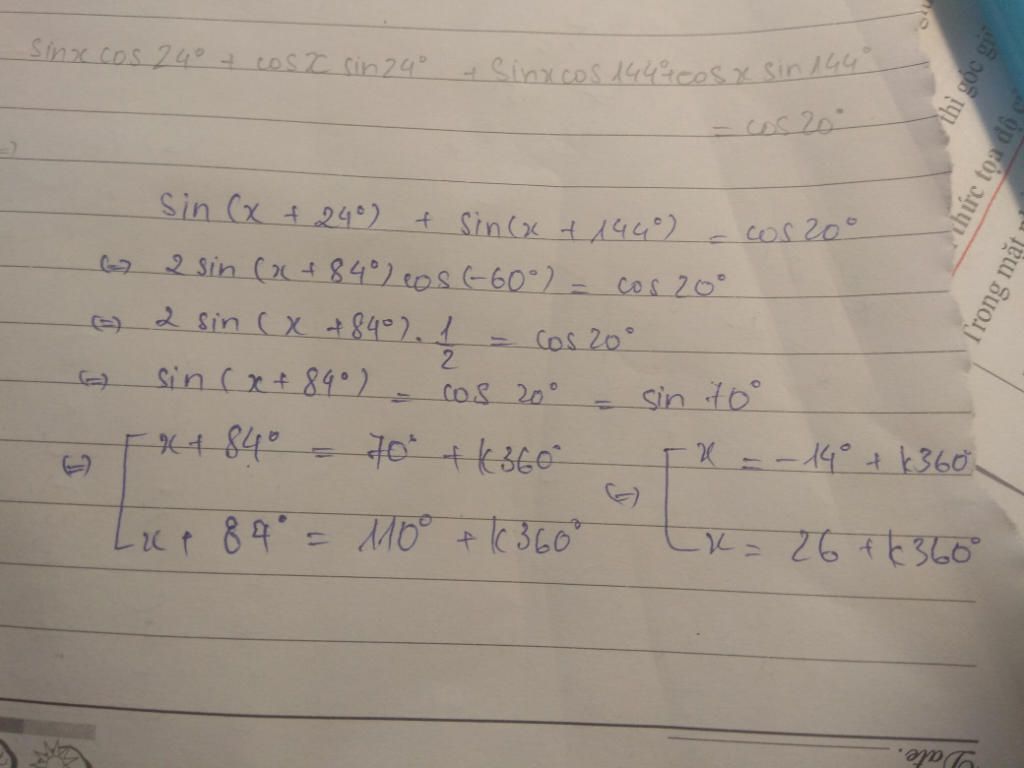 sinx cos 24° + cosx sin24° + sinx cos 144° + cos x sin 144°
= cos 20°
=)
sin(x + 24°) + sin(x + 144°) = cos 20°
⇔ 2 sin(x + 84°) cos(-60°) = cos 20°
⇔ 2 sin(x + 84°). 1/2 = cos 20°
⇔ sin(x + 84°) = cos 20° = sin 70°
⇔ [ x + 84° = 70° + k360° ⇔ [ x = -14° + k360°
x + 84° = 110° + k360° x = 26 + k360°
thì góc giữ
thức tọa độ c
Trong mặt
Date.